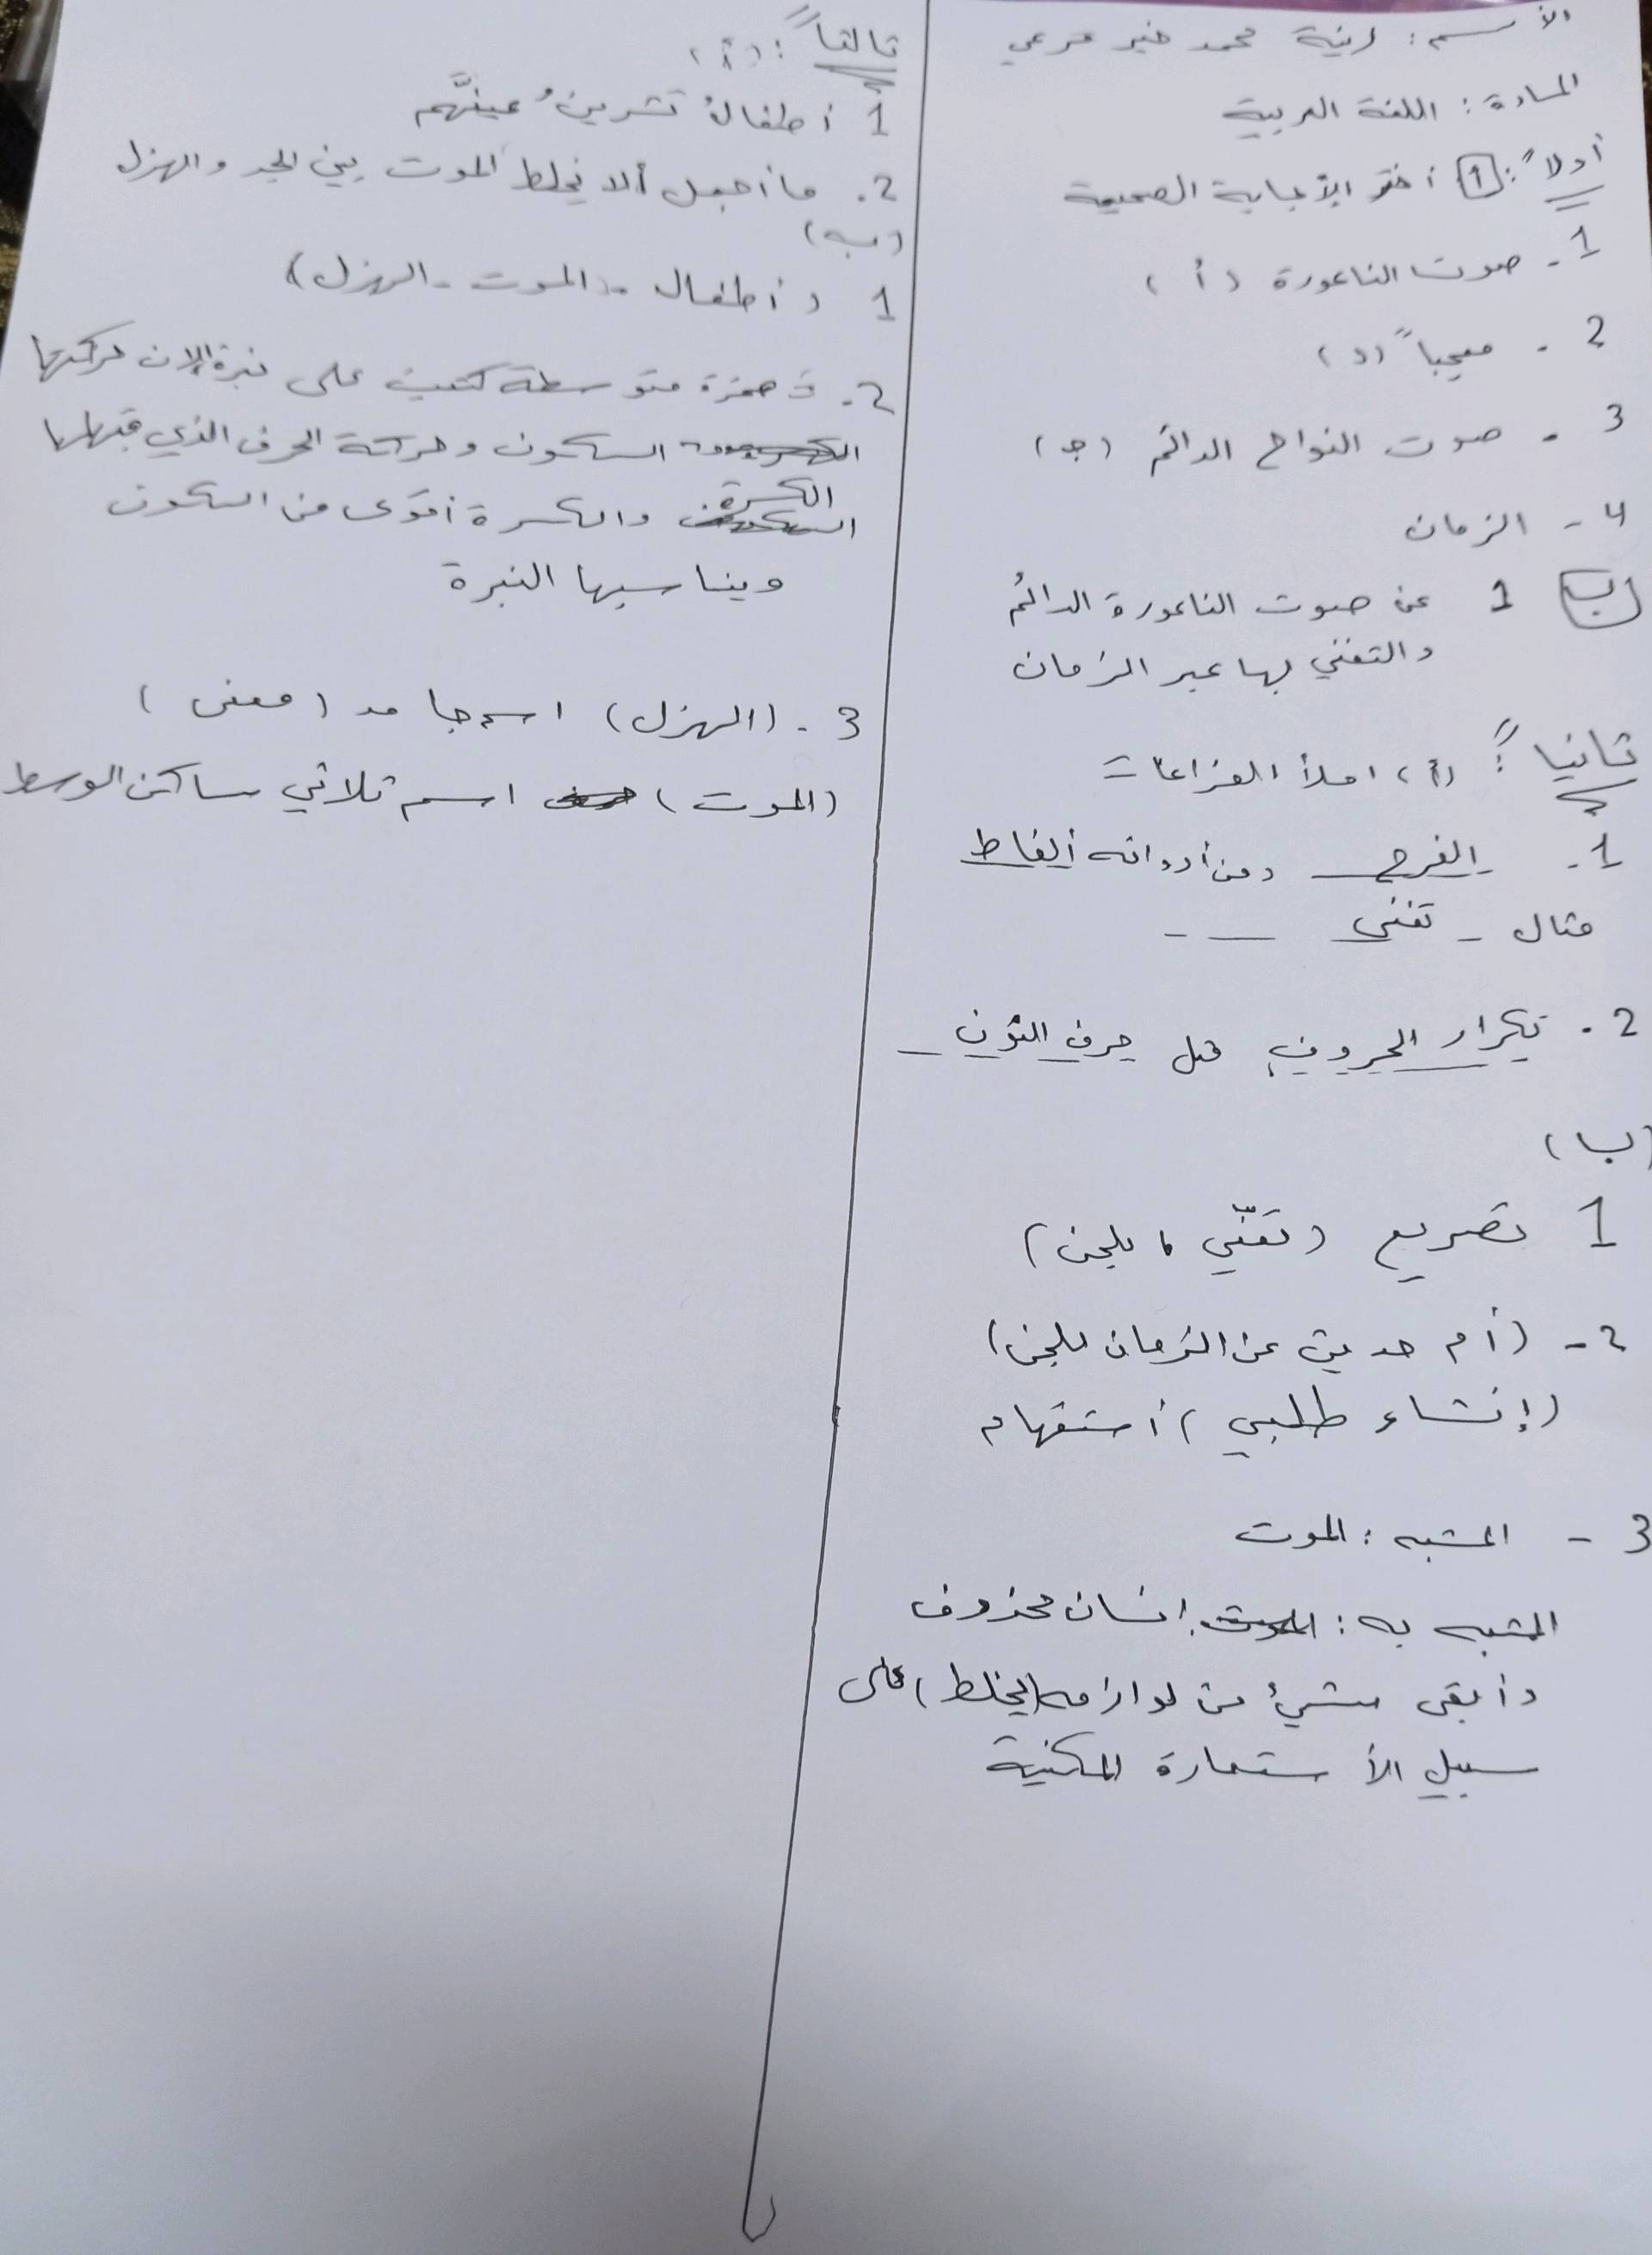 الأسم: رنية محمد خير مرعي
المادة: اللغة العربية
أولاً: 1 أختر الأجابة الصحيحة
1- صوت الناعورة (أ)
2- معجباً (د)
3- صوت النواح الدائم (جـ)
4- الزمان
(ب) 1 عن صوت الناعورة الدائم
والتغني بها عبر الزمان
ثانياً: (أ) املأ الفراغات
1- الفرح ومن أدواته ألفاظ
مثال - تغنى
2- تكرار الحروف مثل حرف النون
(ب)
1 تصريع (تغنّي، بلحن)
2- (أم حديث عن الزمان بلحن)
(إنشاء طلبي) أستفهام
3- المشبه: الموت
المشبه به: إنسان محذوف
وأبقى شيئ من لوازمه (يخلط) على
سبيل الأستعارة المكنية
ثالثاً: (أ)
1 أطفالُ تشرينُ عينَّهم
2. ما أجمل ألا يخلط الموت بين الجد والهزل
(ب)
1 (أطفال - الموت - الهزل)
2- همزة متوسطة كتبت على نبرة لان حركتها
السكون وحركة الحرف الذي قبلها
الكسرة والكسرة أقوى من السكون
ويناسبها النبرة
3- (الهزل) اسم جامد (معنى)
(الموت) اسم ثلاثي ساكن الوسط